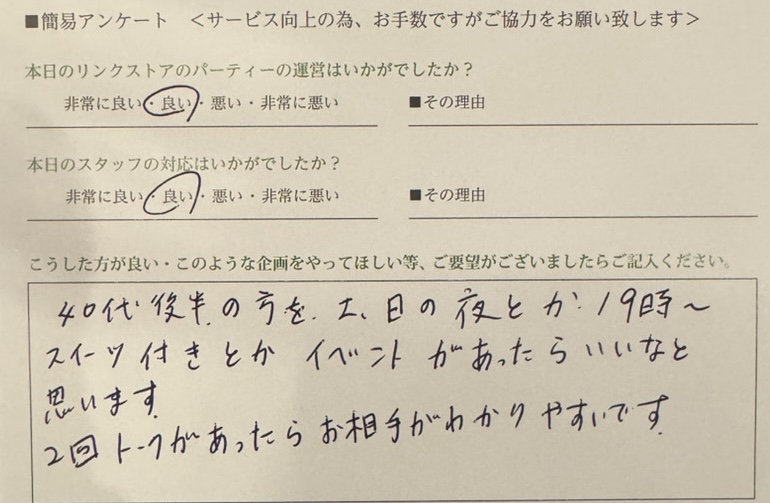 ■簡易アンケート ＜サービス向上の為、お手数ですがご協力をお願い致します＞
本日のリンクストアのパーティーの運営はいかがでしたか？
非常に良い・良い・悪い・非常に悪い ■その理由
本日のスタッフの対応はいかがでしたか？
非常に良い・良い・悪い・非常に悪い ■その理由
こうした方が良い・このような企画をやってほしい等、ご要望がございましたらご記入ください。
40代後半の方を、土、日の夜とか 19時〜
スイーツ付きとか イベントがあったらいいなと
思います
2回トークがあったらお相手がわかりやすいです